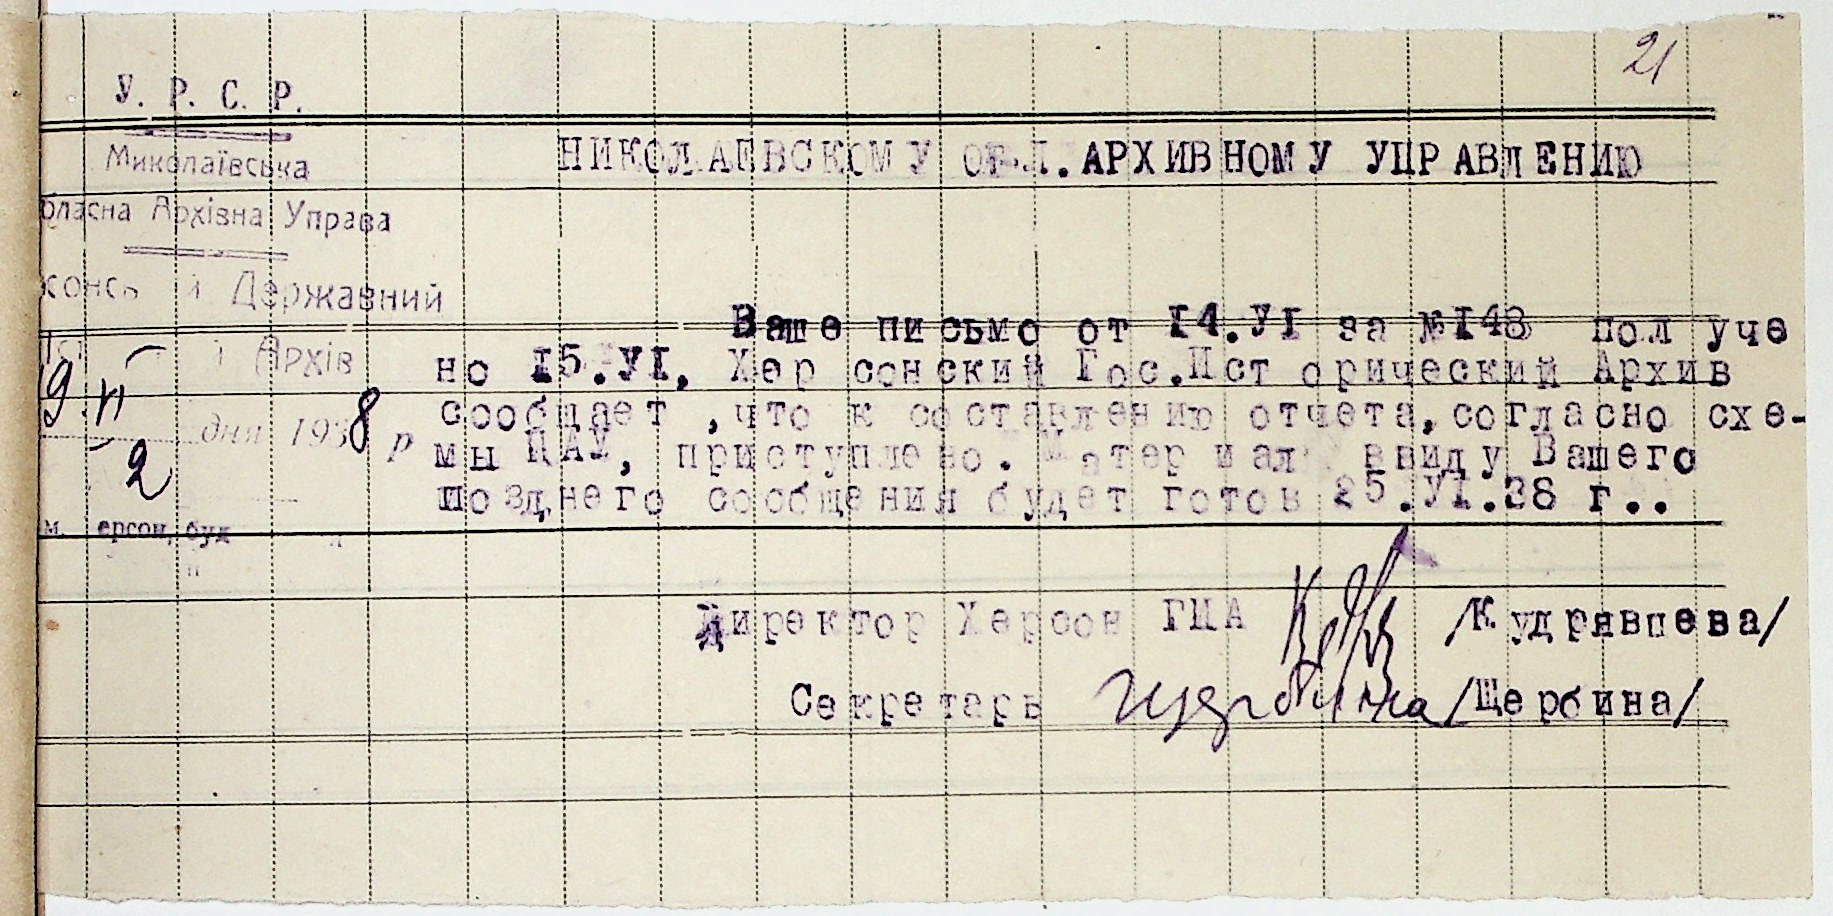 21
У. Р. С. Р.
Миколаївська
бласна Архівна Управа
Державний
Архів
дня 1938 р
2
м. ерсон, буд
НИКОЛАЕВСКОМУ ОБЛ.АРХИВНОМУ УПРАВЛЕНИЮ
Ваше письмо от I4.УI за №I48 получе
но I5.УI, Херсонский Гос.Ист орический Архив
сообщает ,что к составлению отчета,согласно схе-
мы ЦАУ, приступлено. Материал ввиду Вашего
позднего сообщения будет готов 25.УI.38 г..
Директор Херсон ГИА /Кудрявцева/
Секретарь Щербина /Щербина/